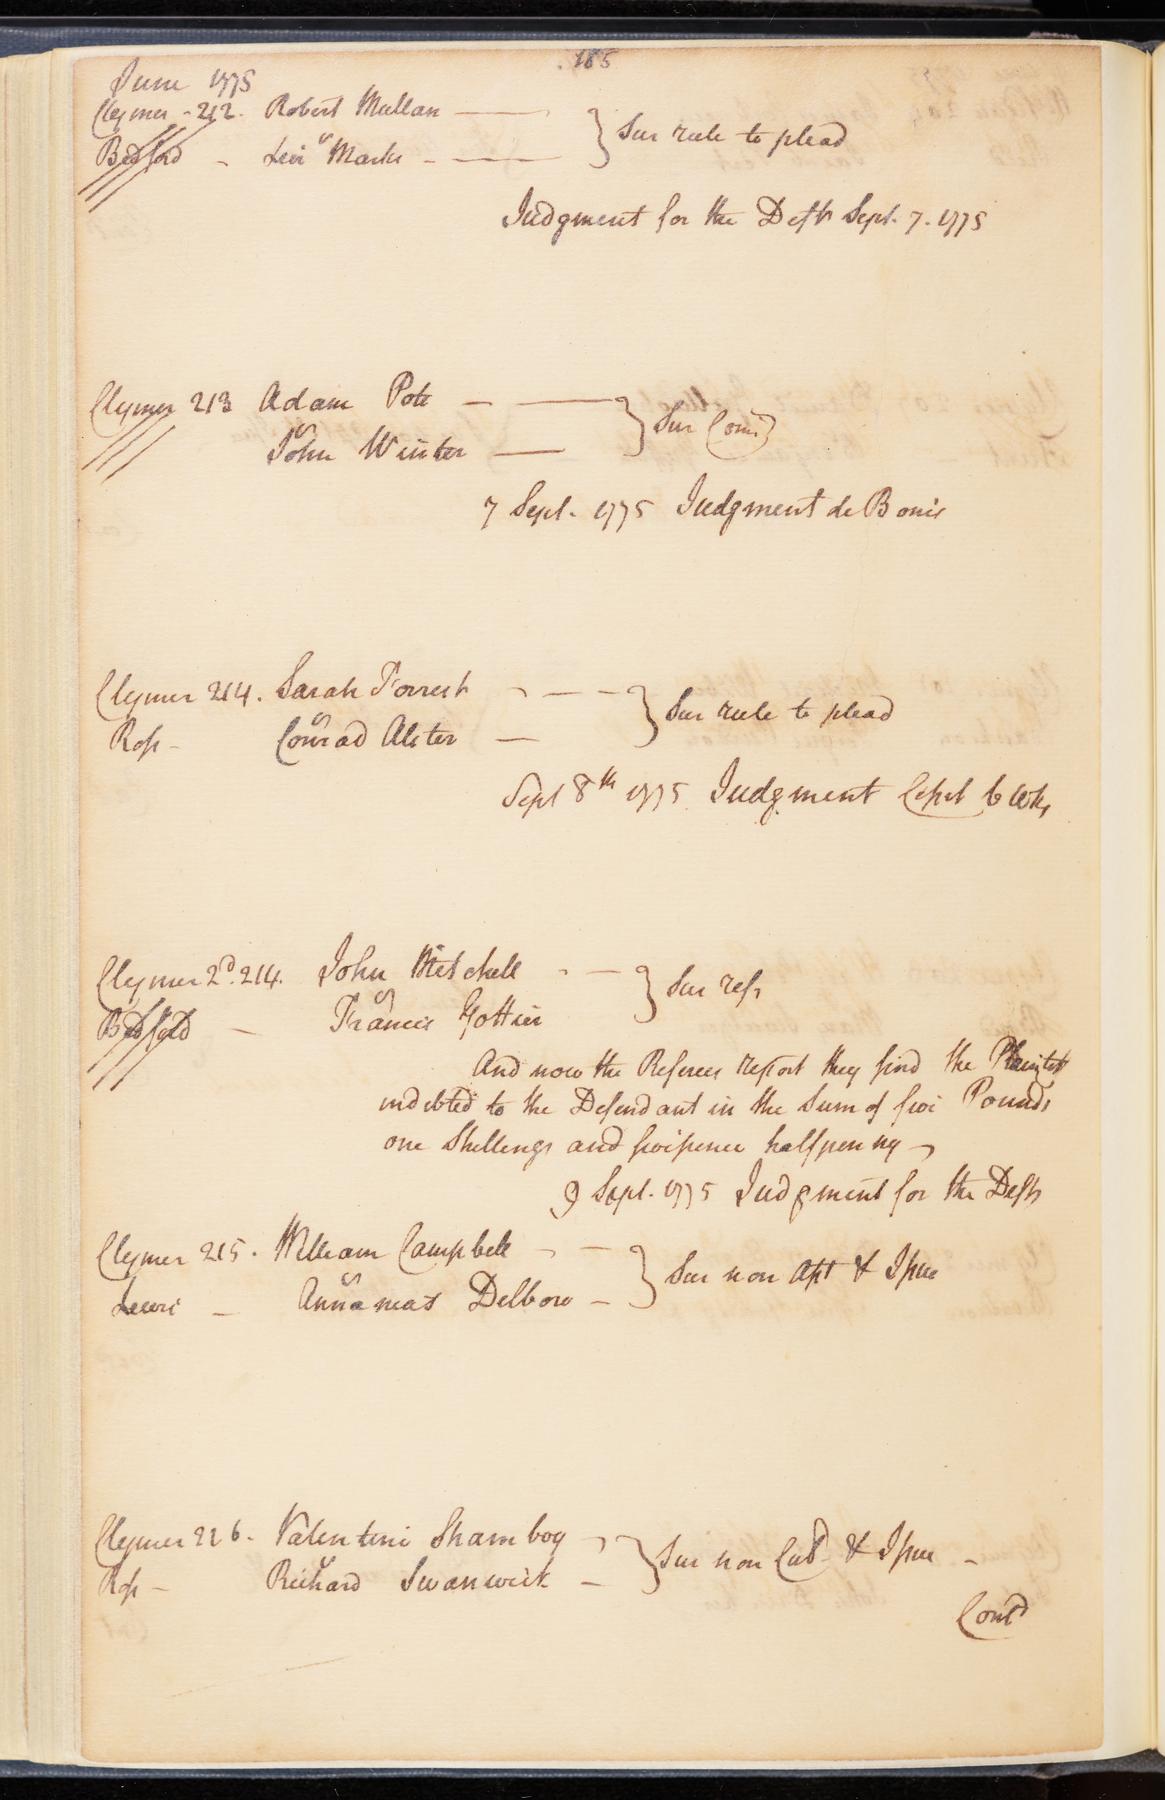 185
June 1775
Clymer - 212. Robert Mullan
Bedford - Levi Marks - Sur rule to plead
Judgment for the Deft Sept. 7. 1775
Clymer 213 Adam Pote
John Winter Sur Com
7 Sept. 1775 Judgment de Bonis
Clymer 214. Sarah Forrest
Ross - Conrad Alster Sur rule to plead
Sept 8th 1775 Judgment 6 Wks
Clymer 2d. 214. John Mitchell
Bedford - Francis Sur refs
And now the Referees report they find the Plaintiff
indebted to the Defendant in the Sum of five Pounds
one Shillings and fivepence halfpenny
9 Sept. 1775 Judgment for the Deft
Clymer 215. William Campbell
Lewis - Annameas Delbow - Sur non Apt & Issue
Clymer 226. Valentine Shamboy
Ross - Richard Swanwick - Sur non Cul & Issue -
Contd